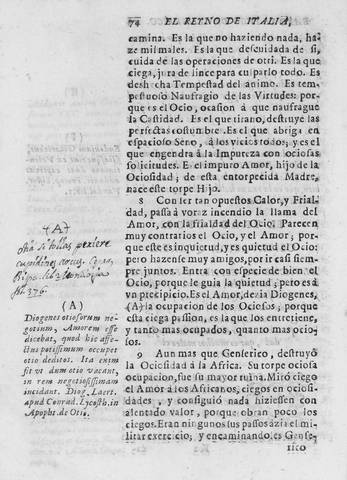 74 EL REYNO DE ITALIA,
camina. Es la que no haziendo nada, ha-
ze mil males. Es la que descuidada de si,
cuida de las operaciones de otri. Es la que
ciega, jura de lince para culparlo todo. Es
deshecha Tempestad del animo. Es tem-
pestuoso Naufragio de las Virtudes: por-
que es el Ocio, ocasion à que naufrague
la Castidad. Es el que tirano, destruye las
perfectas costumbres. Es el que abriga en
espacioso Seno, à los vicios todos; y es el
que engendrà à la Impureza con ociosas
solicitudes. E el impuro Amor, hijo de la
Ociosidad; de esta entorpecida Madre,
nace este torpe Hijo.
8 Con ser tan opuestos Calor, y Frial-
dad, passà à voraz incendio la llama del
Amor, con la frialdad del Ocio. Parecen
muy contrarios el Ocio, y el Amor; por-
que este es inquietud, y es quietud el Ocio:
pero hazense muy amigos, por ir casi siem-
pre juntos. Entra con especie de bien el
Ocio, porque le guia la quietud; pero es à
vn precipicio. Es el Amor, dezia Diogenes,
(A) la ocupacion de los Ociosos; porque
gasta esta passion, es la que los entretiene,
y tanto mas ocupados, quanto mas ocio-
sos.
9 Aun mas que Genserico, destruyò
la Ociosidad à la Africa. Su torpe ociosa
ocupacion, fuè su mayor ruina. Mirò ciego
el Amor à los Africanos, ciegos en ociosi-
dades, y consiguiò nada hiziessen con
alentado valor, porque obran poco los
ciegos. Eran ninguno sus passos azia el mi-
litar exercicio; y encaminando es Gense-
rico
(A)
otia si tollas periere
cupidinis arcus.
fol. 376.
(A)
Diogenes otiosorum ne-
gotium, Amorem esse
dicebat, quod hic affe-
ctus potissimum occupet
otio deditos. Ita enim
fit vt dum otio vacant,
in rem negotiosissimam
incidant. Diog. Laert.
apud Conrad. Lycosth. in
Apophs. de Otio.